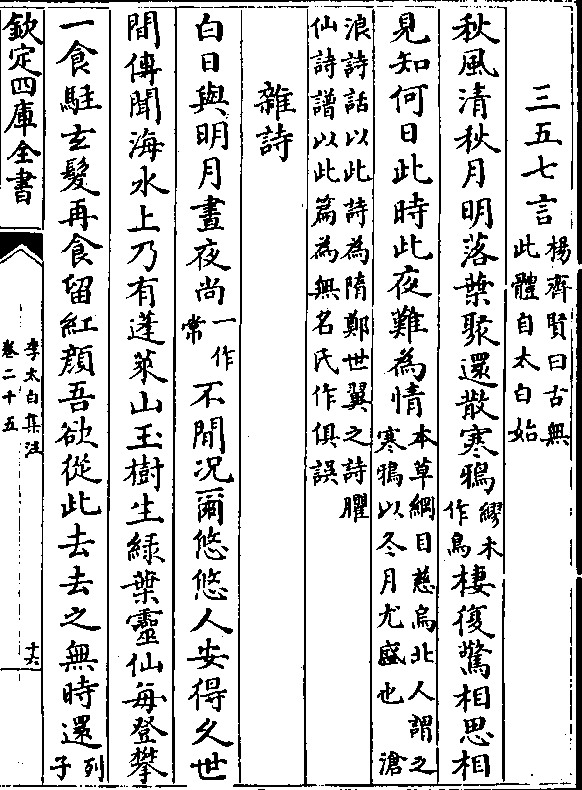 三五七言楊齊賢曰古無此體自太白始
秋風清秋月明落葉聚還散寒鴉繆本作烏棲復驚相思相
見知何日此時此夜難為情本草綱目慈烏北人謂之寒鴉以冬月尤盛也滄
浪詩話以此詩為隋鄭世翼之詩臞仙詩譜以此篇為無名氏作俱誤
雜詩
白日與明月晝夜尚一作常不閒况爾悠悠人安得久世
間傳聞海水上乃有蓬萊山玉樹生緑葉靈仙每登攀
一食駐玄髮再食留紅顔吾欲從此去去之無時還列子
欽定四庫全書
李太白集注
卷二十五
十六